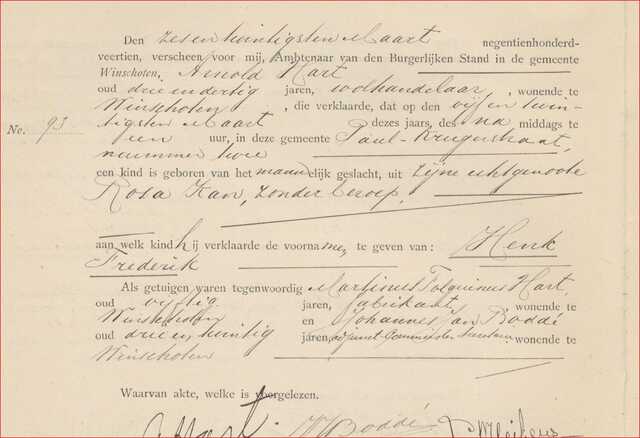 Den zes en twintigsten Maart negentienhonderd-
veertien, verscheen voor mij, Ambtenaar van den Burgerlijken Stand in de gemeente
Winschoten, Arnold Hart
oud drie en dertig jaren, wolhandelaar, wonende te
Winschoten, die verklaarde, dat op den vijf en twin-
No. 93 tigsten Maart dezes jaars, des na middags te
een uur, in deze gemeente Paul-Krugerstraat,
nummer twee
een kind is geboren van het mannelijk geslacht, uit zijne echtgenoote
Rosa Kan, zonder beroep,
aan welk kind hij verklaarde de voornamen, te geven van: Henk
Frederik
Als getuigen waren tegenwoordig Martinus Hart,
oud vijftig jaren, fabrikant, wonende te
Winschoten en Johannes Jan Boddé
oud drie en twintig jaren, adjunct-Commies ter Secretarie wonende te
Winschoten
Waarvan akte, welke is voorgelezen.
A Hart. Boddé